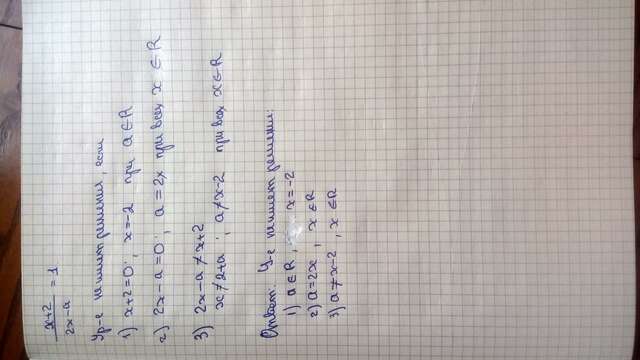 x+2/2x-a = 1
Ур-е не имеет решения, если
1) x+2=0; x=-2 при a∈R
2) 2x-a=0; a=2x при всех x∈R
3) 2x-a≠x+2
x≠2+a; a≠x-2 при всех x∈R
Ответ: Ур-е не имеет решения:
1) a∈R, x=-2
2) a=2x, x∈R
3) a≠x-2, x∈R